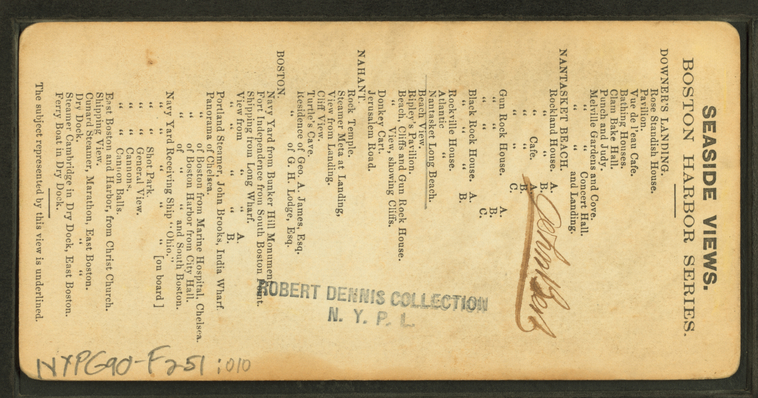 SEASIDE VIEWS.
BOSTON HARBOR SERIES.
DOWNER'S LANDING.
Rose Standish House.
Pavilion.
Vue de l'eau Cafe.
Bathing Houses.
Clam Bake Hall.
Punch and Judy.
Melville Gardens and Cove.
" " Concert Hall.
" " and Landing.
NANTASKET BEACH.
Rockland House. A.
" " B.
" Cafe. A.
" " C.
Gun Rock House. A.
" " B.
" " C.
Black Rock House. A.
" " B.
Rockville House.
Atlantic "
Nantasket Long Beach.
Beach View.
Ripley's Pavilion.
Beach, Cliffs and Gun Rock House.
" View, showing Cliffs.
Donkey Cart.
Jerusalem Road.
NAHANT.
Rock Temple.
Steamer Meta at Landing.
View from Landing.
Cliff View.
Turtle's Cave.
Residence of Geo. A. James, Esq.
" of G. H. Lodge, Esq.
BOSTON.
Navy Yard from Bunker Hill Monument.
Fort Independence from South Boston Point.
Shipping from Long Wharf.
View from " " A.
" " " " B.
Portland Steamer, John Brooks, India Wharf.
Panorama of Chelsea.
" of Boston from Marine Hospital, Chelsea.
" of Boston Harbor from City Hall.
" of " " and South Boston.
Navy Yard Receiving Ship "Ohio."
" " " " [on board]
" " Shot Park.
" " General View.
" " Cannons.
" " Cannon Balls.
East Boston and Harbor, from Christ Church.
Shipping View.
Cunard Steamer, Marathon, East Boston.
Dry Dock.
Steamer Cambridge in Dry Dock, East Boston.
Ferry Boat in Dry Dock.
The subject represented by this view is underlined.
ROBERT DENNIS COLLECTION
N. Y. P. L.
NYPG90-F251:010